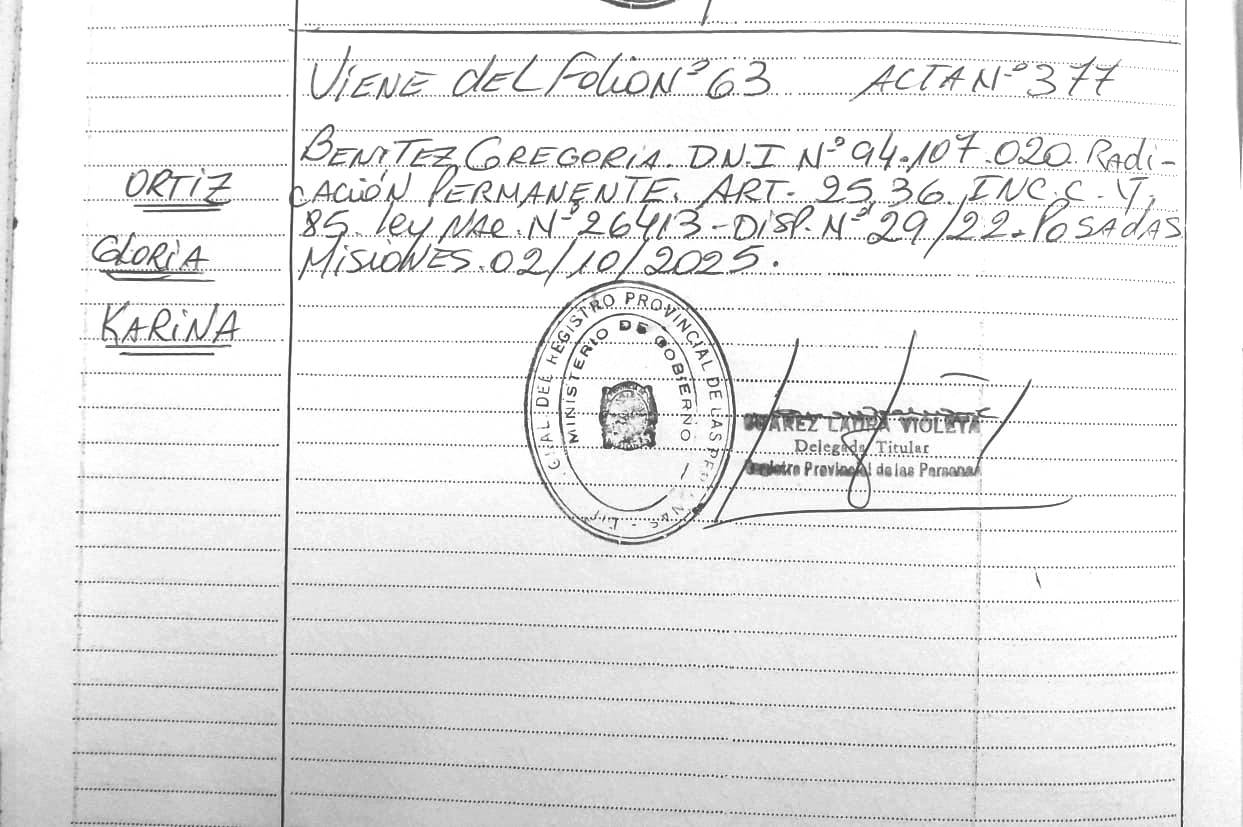 VIENE del Folio Nº 63 ACTA Nº 377
BENITEZ GREGORIA. D.N.I Nº 94.107.020. Radi-
cación PERMANENTE. ART. 25,36 INC.C. Y,
85. Ley NAC. Nº 26413-DISP. Nº 29/22. POSADAS
MISIONES. 02/10/2025.
ORTIZ
GLORIA
KARINA
CIAL DEL REGISTRO PROVINCIAL DE LAS PERSONAS
MINISTERIO DE GOBIERNO
LAURA VIOLETA
Delegada Titular
Registro Provincial de las Personas